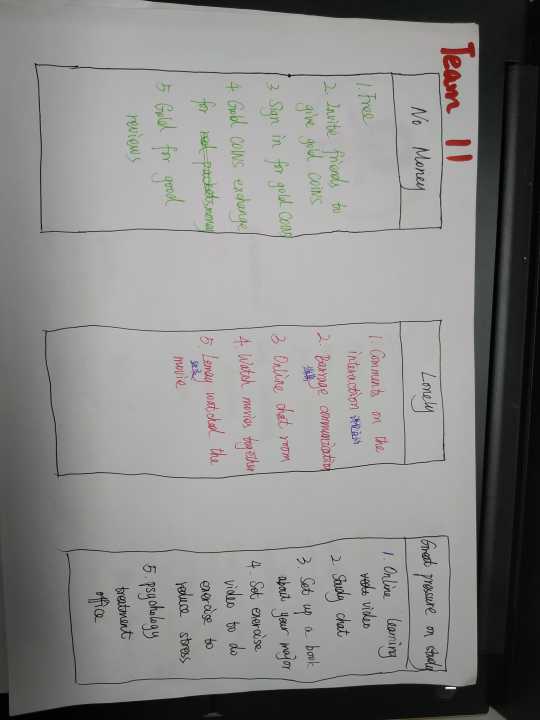 Team 11
No Money
1. Free
2. Invite friends to
give gold coins
3 Sign in for gold coins
4 Gold coins exchange
for red packets money
5 Gold for good
reviews
Lonely
1. Comments on the
interaction
2. Barrage communication
3 Online chat room
4. Watch movies together
5. watched the
movie
Great pressure on study
1. Online learning
video
2 Study chat
3. Set up a book
about your major
4. Set exercise
video to do
exercise to
reduce stress
5. psychology
treatment
office